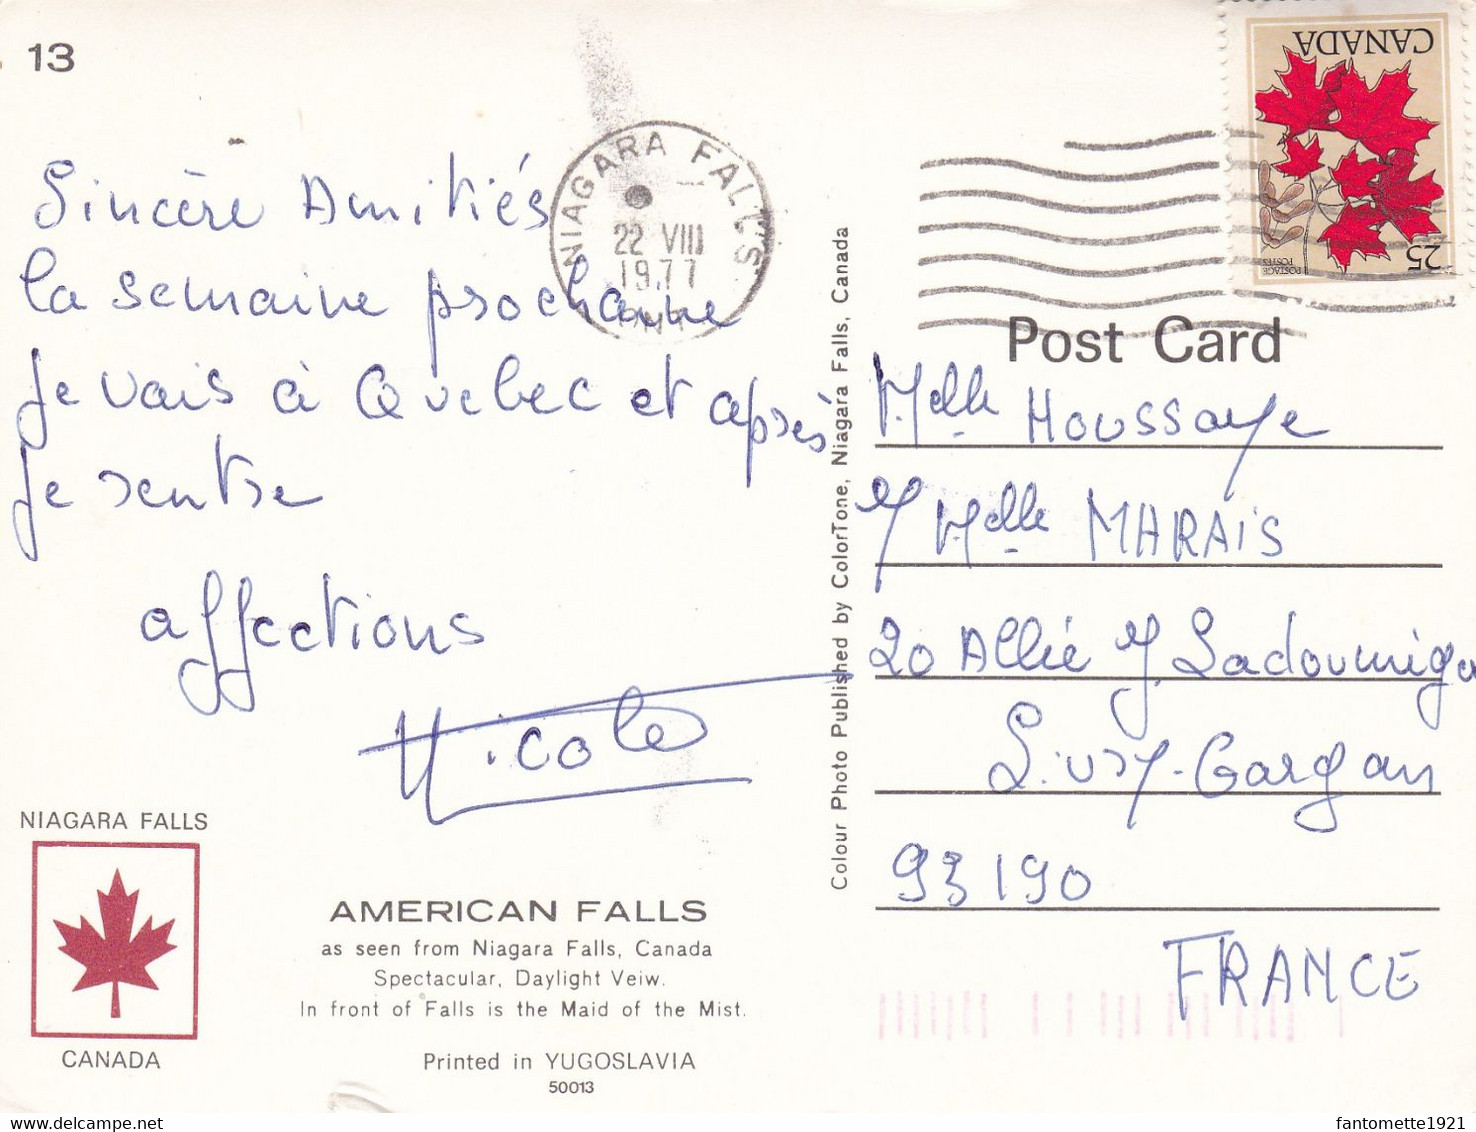 13
Sincère Amitiés
la semaine prochaine
je vais à Quebec et après
je rentre
affections
Nicole
NIAGARA FALLS
CANADA
AMERICAN FALLS
as seen from Niagara Falls, Canada
Spectacular, Daylight Veiw.
In front of Falls is the Maid of the Mist.
Printed in YUGOSLAVIA
50013
NIAGARA FALLS
22 VIII
1977
ONT.
Colour Photo Published by ColorTone, Niagara Falls, Canada
CANADA
25
POSTAGE
POSTES
Post Card
Melle Houssaye
et Melle MARAIS
20 Allée J. Ladoumègue
Livry-Gargan
93190
FRANCE
fantomette1921